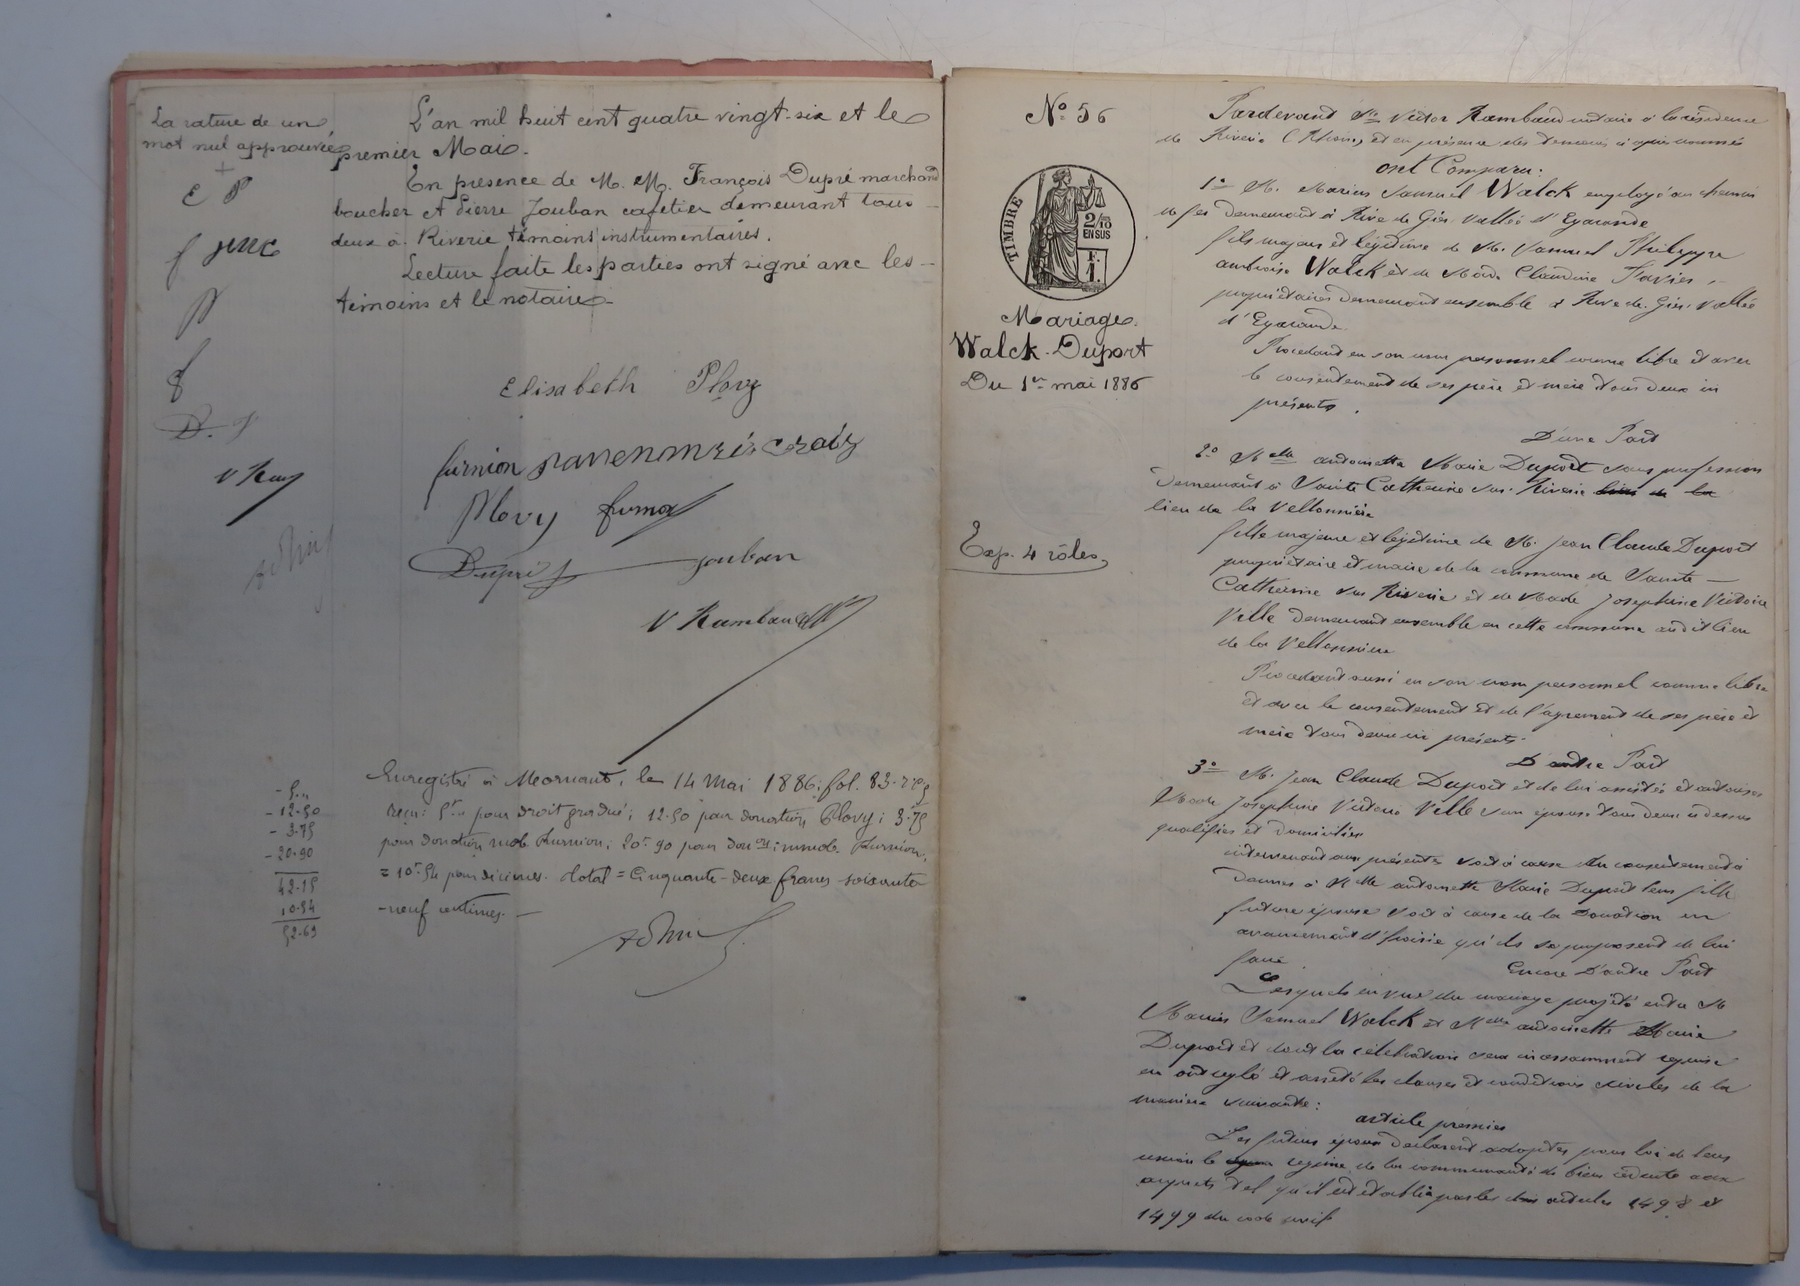 La rature de un
mot nul approuvée
E P
f
D. J
V Ram
L'an mil huit cent quatre vingt-six et le
premier Mai.
En présence de M. M. François Dupré marchand
boucher et Pierre Jouban cafetier demeurant tous
deux à Riverie témoins instrumentaires.
Lecture faite les parties ont signé avec les
témoins et le notaire.
Elisabeth Plovy
furnion
Plovy
Dupré Jouban
V Rambaud
Enregistré à Mornant, le 14 Mai 1886, fol. 83.
Reçu: 5f." pour droit gradué; 12.50 pour donation Plovy; 3f.75
pour donation mob. furnion; 20f.90 pour don on immob. furnion,
= 10f.54 pour décimes. Total = Cinquante-deux francs soixante
-neuf centimes.
- 5."
- 12.50
- 3.75
- 20.90
42.15
10.54
52.69
No 56
TIMBRE
2/10
EN SUS
F.
1.
Mariage
Walck-Duport
Du 1er mai 1886
Exp. 4 rôles.
Pardevant Me Victor Rambaud notaire à la résidence
de Riverie (Rhône) et en présence des témoins ci après nommés
ont Comparu:
1o M. Marius Samuel Walck employé au chemin
de fer demeurant à Rive de Gier vallée d'Egarande
fils majeur et légitime de M. Samuel Philippe
ambroise Walck et de Made Claudine
propriétaires demeurant ensemble à Rive-de-Gier vallée
d'Egarande
Procédant en son nom personnel comme libre et avec
le consentement de ses père et mère tous deux ici
présents.
D'une Part
2o Melle antoinette Marie Duport sans profession
demeurant à Sainte Catherine sur Riverie lieu de la
lieu de la Vellonnière
fille majeure et légitime de M. Jean Claude Duport
propriétaire et maire de la commune de Sainte
Catherine sur Riverie et de Made Josephine Victoire
Ville demeurant ensemble en cette commune audit lieu
de la Vellonnière
Procédant aussi en son nom personnel comme libre
et avec le consentement et de l'agrément de ses père et
mère tous deux ici présents.
D'autre Part
3o M. Jean Claude Duport et de lui assistée et autorisée
Made Josephine Victoire Ville son épouse tous deux ci dessus
qualifiés et domiciliés
intervenant aux présentes soit à cause du consentement à
donner à Melle antoinette Marie Duport leur fille
future épouse soit à cause de la Donation en
avancement d'hoirie qu'ils se proposent de lui
faire
Encore D'autre Part
Lesquels en vue du mariage projeté entre M
Marius Samuel Walck et Melle antoinette Marie
Duport et dont la célébration sera incessamment requise
en ont réglé et arrêté les clauses et conditions civiles de la
manière suivante:
article premier
Les futurs époux déclarent adopter pour loi de leur
union le régime de la communauté de biens réduite aux
acquets tel qu'il est établi par les articles 1498 et
1499 du code civil